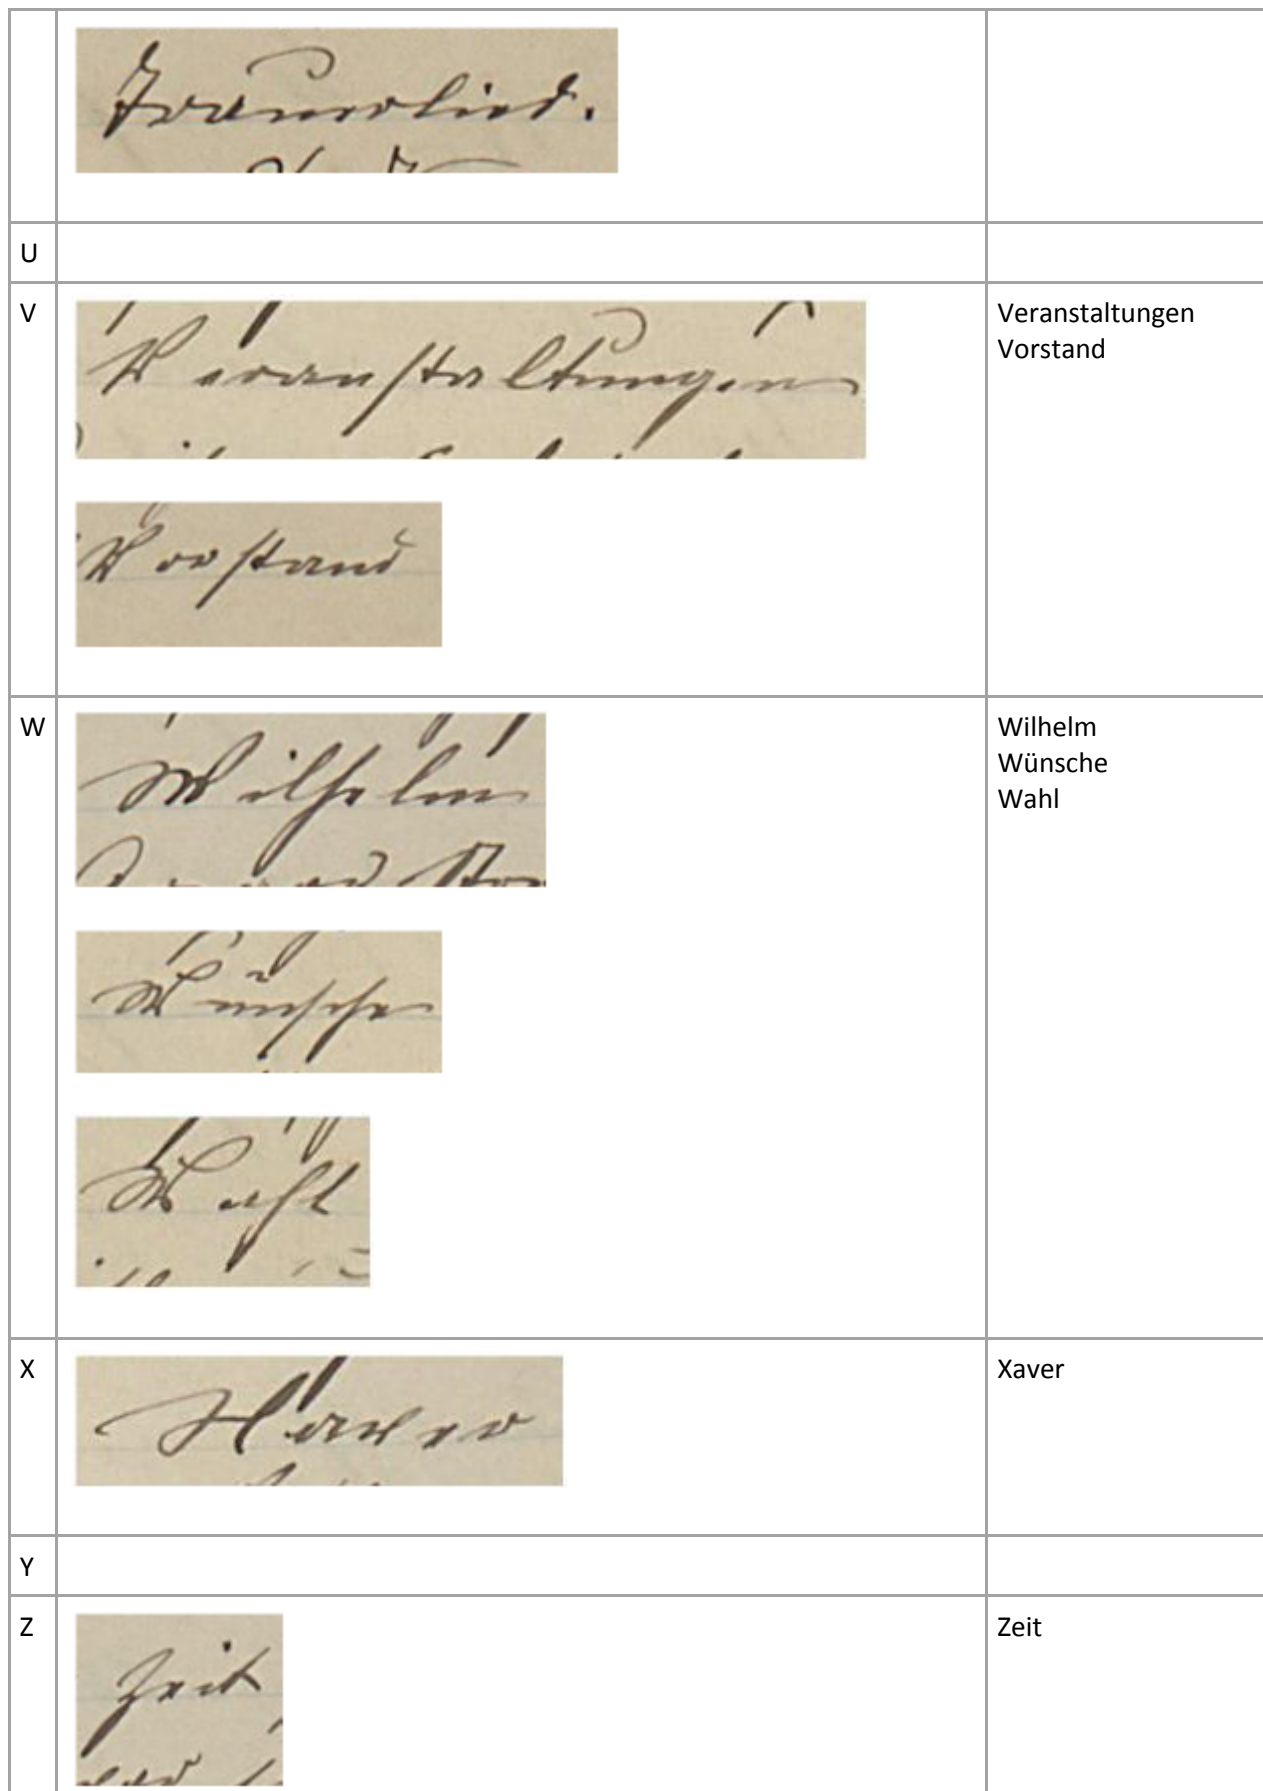 Trauerlied.
U
V
Veranstaltungen
Vorstand
Veranstaltungen
Vorstand
W
Wilhelm
Wünsche
Wahl
Wilhelm
Wünsche
Wahl
X
Xaver
Xaver
Y
Z
Zeit
Zeit